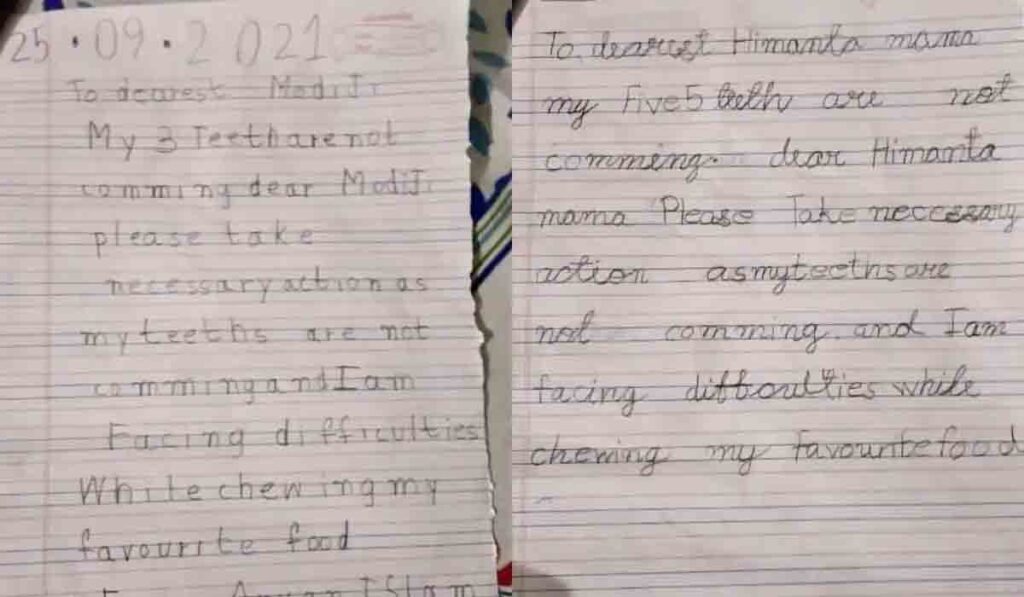 25.09.2021
To dearest ModiJi
My 3 Teeth are not
comming dear ModiJi
please take
necessary action as
my teeths are not
comming and I am
Facing difficulties
While chewing my
favourite food
To dearest Himanta mama
my Five 5 teeth are not
comming. dear Himanta
mama Please Take necessary
action as my teeths are
not comming. and I am
facing difficulties while
chewing my favourite food